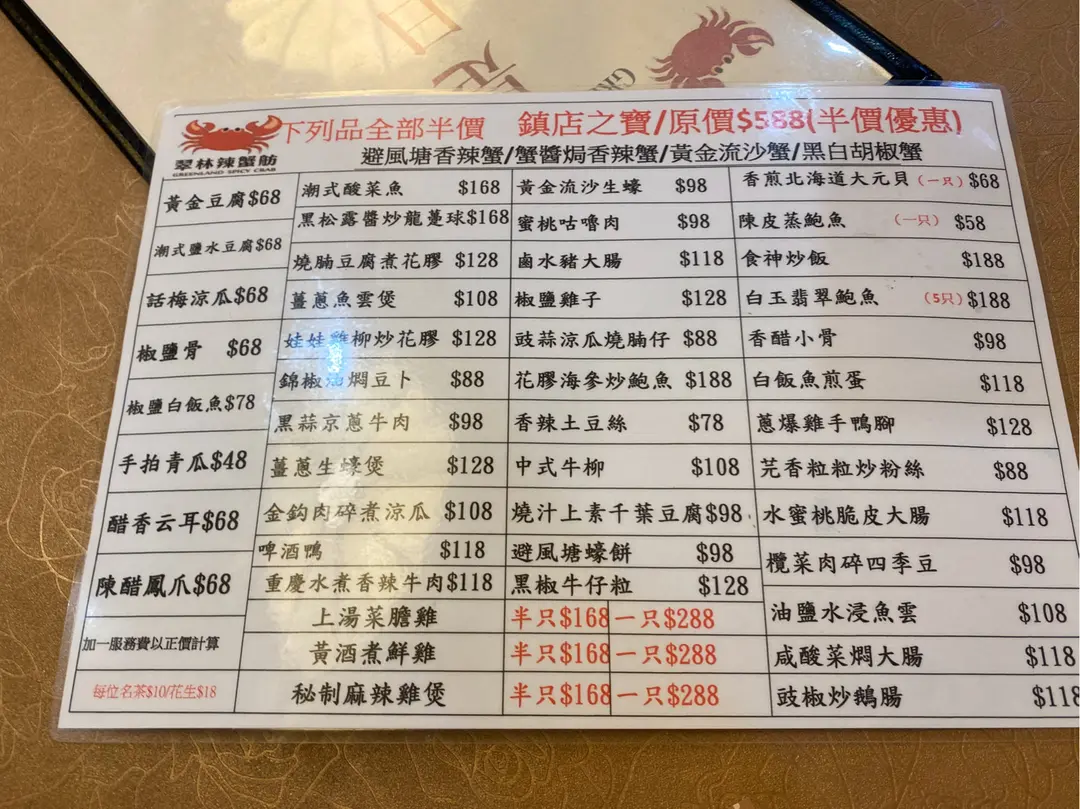 下列品全部半價 鎮店之寶/原價$588(半價優惠)
翠林辣蟹舫
GREENLAND SPICY CRAB
避風塘香辣蟹/蟹醬焗香辣蟹/黃金流沙蟹/黑白胡椒蟹
黃金豆腐$68
潮式鹽水豆腐$68
話梅涼瓜$68
椒鹽骨 $68
椒鹽白飯魚$78
手拍青瓜$48
醋香云耳$68
陳醋鳳爪$68
加一服務費以正價計算
每位名茶$10/花生$18
潮式酸菜魚 $168
黑松露醬炒龍躉球$168
燒腩豆腐煮花膠 $128
薑蔥魚雲煲 $108
娃娃雞柳炒花膠 $128
錦椒 燜豆卜 $88
黑蒜京蔥牛肉 $98
薑蔥生蠔煲 $128
金鈎肉碎煮涼瓜 $108
啤酒鴨 $118
重慶水煮香辣牛肉$118
黃金流沙生蠔 $98
蜜桃咕嚕肉 $98
鹵水豬大腸 $118
椒鹽雞子 $128
豉蒜涼瓜燒腩仔 $88
花膠海參炒鮑魚 $188
香辣土豆絲 $78
中式牛柳 $108
燒汁上素千葉豆腐$98
避風塘蠔餅 $98
黑椒牛仔粒 $128
上湯菜膽雞 半只$168 一只$288
黃酒煮鮮雞 半只$168 一只$288
秘制麻辣雞煲 半只$168 一只$288
香煎北海道大元貝(一只)$68
陳皮蒸鮑魚 (一只) $58
食神炒飯 $188
白玉翡翠鮑魚 (5只)$188
香醋小骨 $98
白飯魚煎蛋 $118
蔥爆雞手鴨腳 $128
芫香粒粒炒粉絲 $88
水蜜桃脆皮大腸 $118
欖菜肉碎四季豆 $98
油鹽水浸魚雲 $108
咸酸菜燜大腸 $118
豉椒炒鵝腸 $118